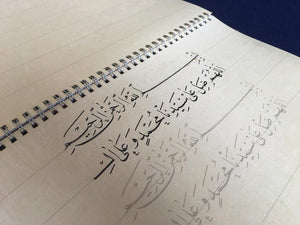 بسم الله الرحمن الرحيم
اللهم صل على سيدنا محمد وعلى ال
بسم الله الرحمن الرحيم
اللهم صل على سيدنا محمد وعلى ال